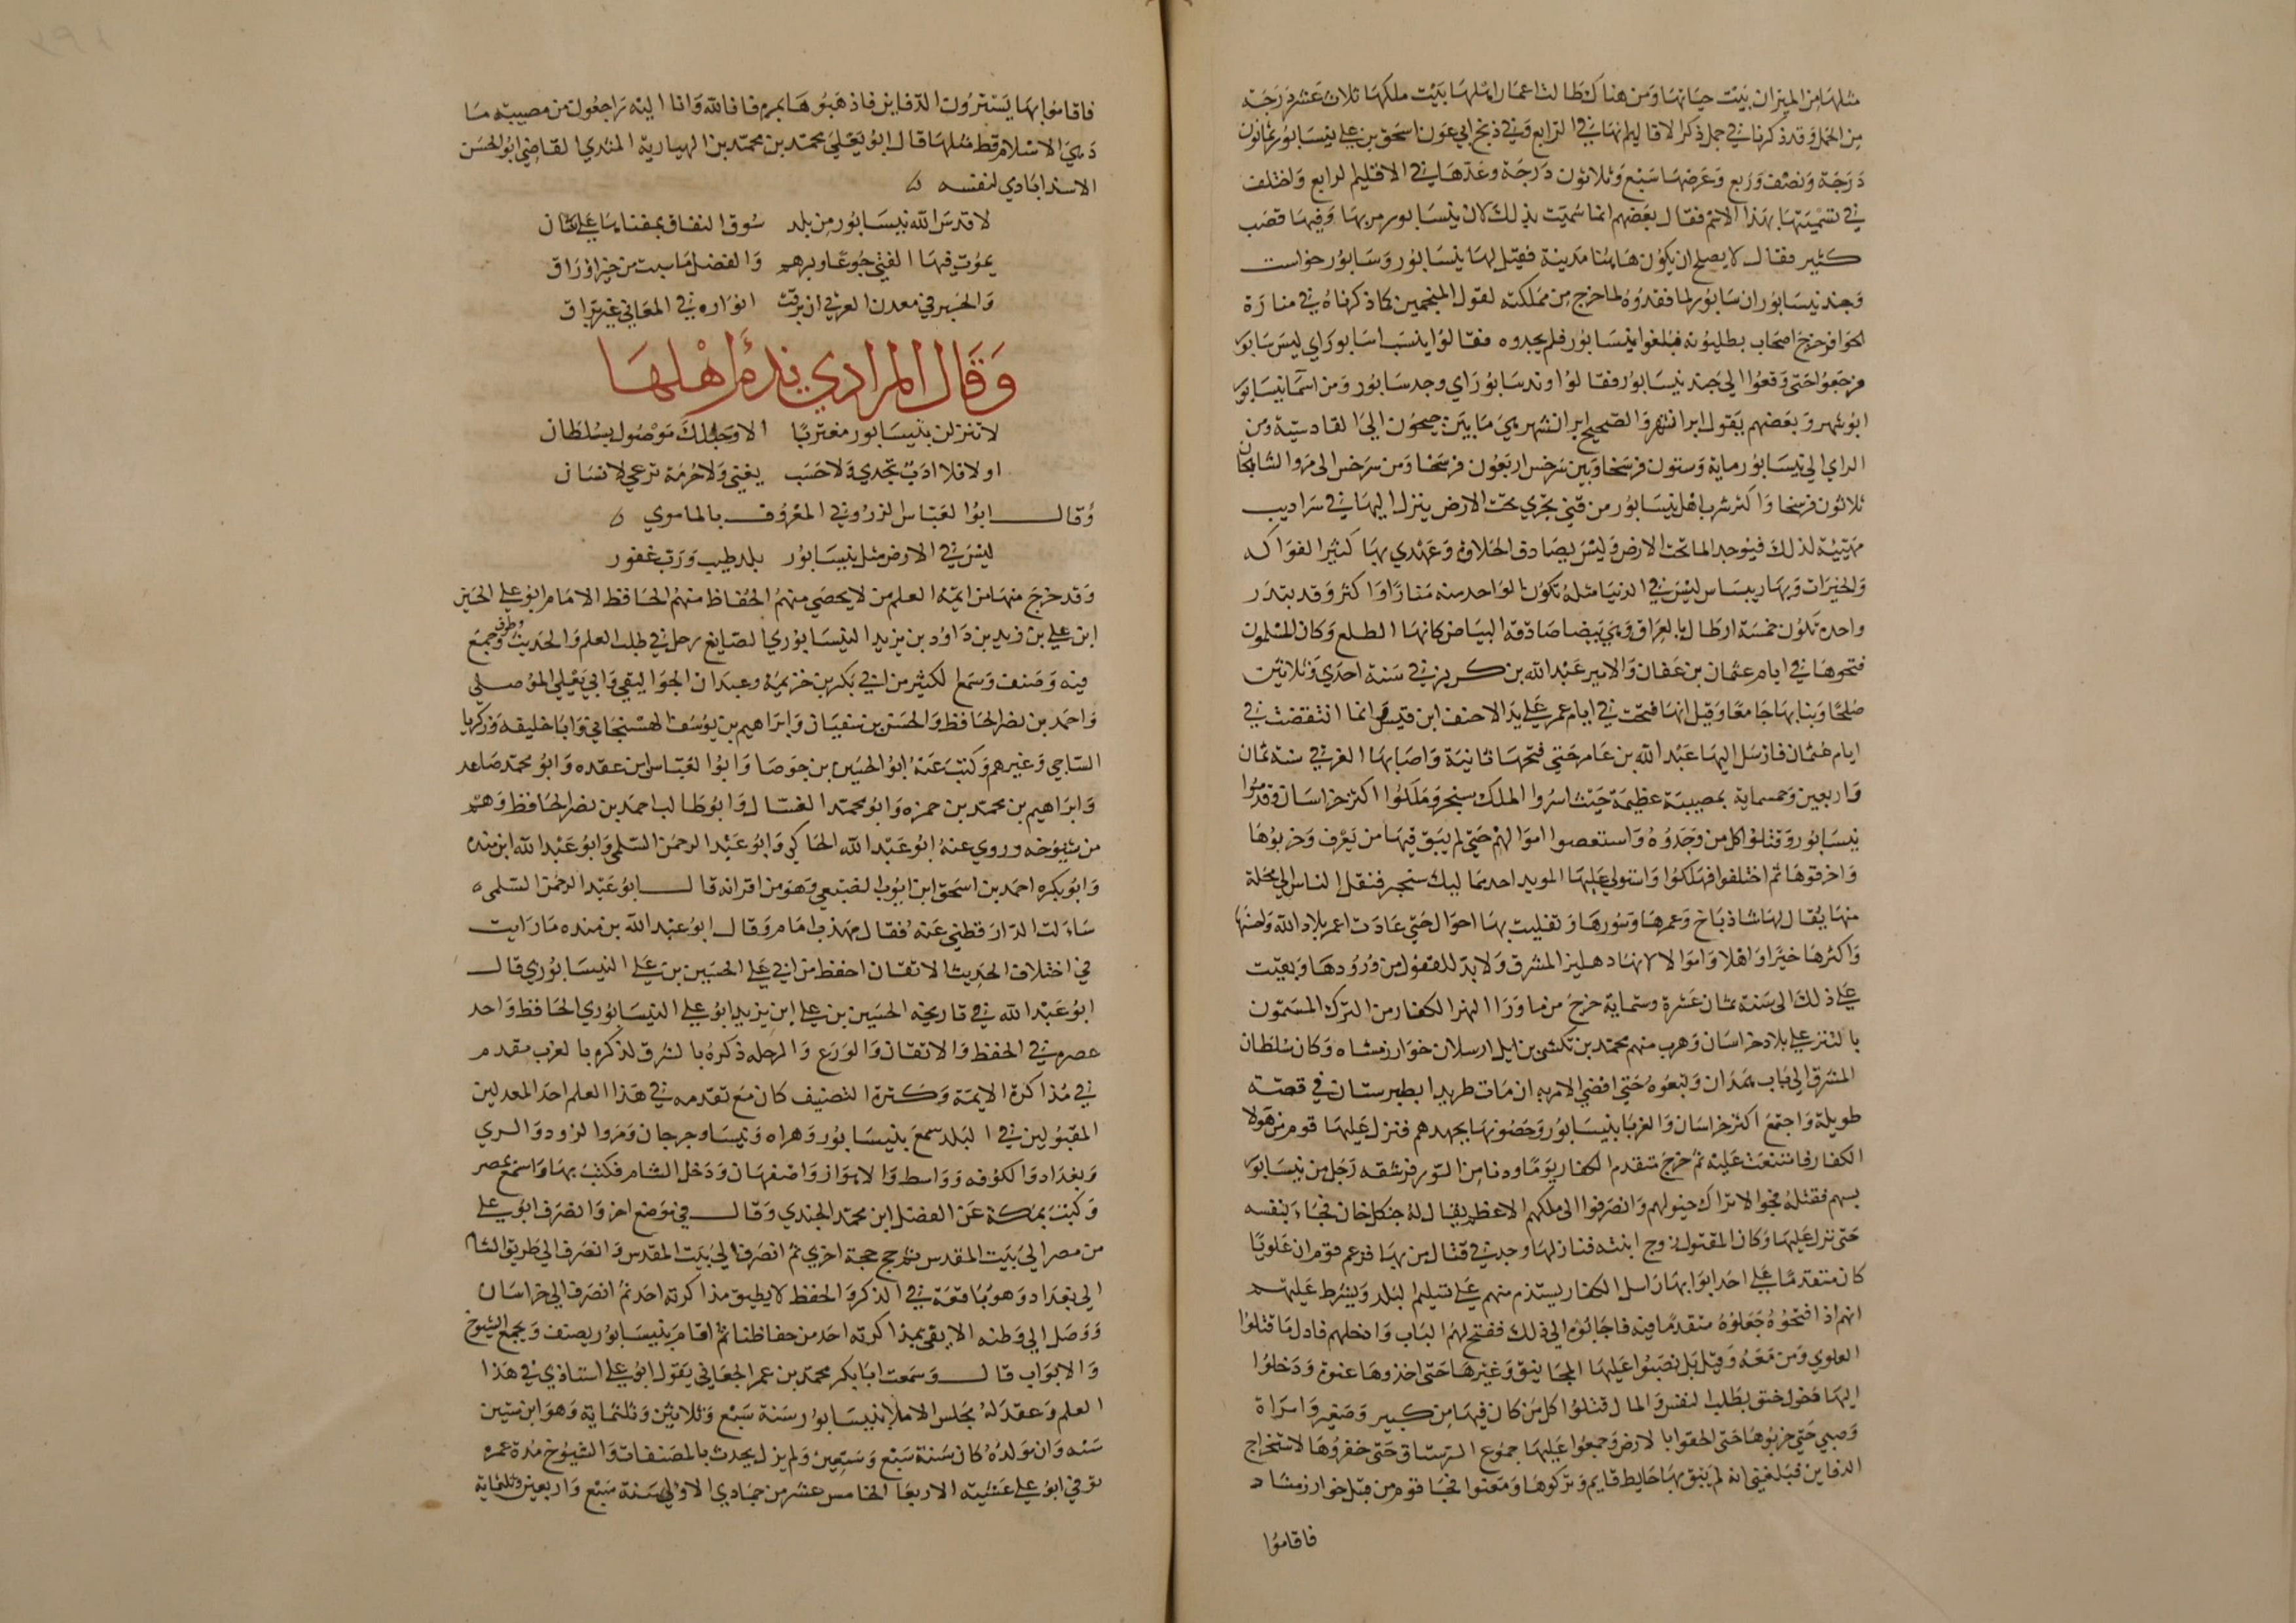 مثلها من الميزان بيت حياتها ومن هناك طالت اعمار اهلها بيت ملكها ثلاث عشر درجة
من الحمل وقد ذكرنا في جمل ذكر الاقاليم انها في الرابع وفي زيج ابي عون اسحق بن علي نيسابور ثمانون
درجة ونصف وربع وعرضها سبع وثلاثون درجة وعدها في الاقليم الرابع واختلف
في تسميتها بهذا الاسم فقال بعضهم انما سميت بذلك لان نيسابور مر بها وفيها قصب
كثير فقال لا يصلح ان يكون هاهنا مدينة فقيل لها نيسابور وسابور خواست
وجند نيسابور ان سابور لما فقدوه لما خرج من مملكته لقول المنجمين كما ذكرناه في منارة
الحوافر خرج اصحاب يطلبونه فبلغوا نيسابور فلم يجدوه فقالوا نيست سابور اي ليس سابور
فرجعوا حتى وقعوا الى جند نيسابور فقالوا وند سابور اي وجد سابور ومن اسما نيسابور
ابو شهر وبعضهم يقول ايرانشهر والصحيح ايرانشهر هي ما بين جيحون الى القادسية ومن
الراي الى نيسابور ماية وستون فرسخا وبين سرخس اربعون فرسخا ومن سرخس الى مرو الشاهجان
ثلاثون فرسخا واكثر شرب اهل نيسابور من قني تجري تحت الارض ينزل اليها في سراديب
مهيئة لذلك فيوجد الما تحت الارض وليس بصادق الحلاوة وعهدي بها كثير الفواكه
والخيرات وبها ريباس ليس في الدنيا مثله تكون الواحد منه منا واكثر وقد
واحده تكون خمسة ارطال بالعراقي وهي بيضا صادقه البياض كانها الطلع وكان المسلمون
فتحوها في ايام عثمان بن عفان والامير عبد الله بن كريز في سنة احدي وثلاثين
صلحا وبنا بها جامعا وقيل انها فتحت في ايام عمر على يد الاحنف ابن قيس وانما انتقضت في
ايام عثمان فارسل اليها عبد الله بن عامر حتي فتحها ثانية واصابها الغز في سنة ثمان
واربعين وخمسماية بمصيبة عظيمة حيث اسروا الملك سنجر وملكوا اكثر خراسان وقدموا
نيسابور وقتلوا كل من وجدوه واستصفوا اموالهم حتي لم يبق فيها من يعرف وخربوها
واحرقوها ثم اختلفوا فهلكوا واستولي عليها المويد احد مماليك سنجر فنقل الناس الي محلة
منها يقال لها شاذباخ وعمرها وسورها وتقلبت بها احوال حتي عادت اعمر بلاد الله واحسنها
واكثرها خيرا واهلا واموالا لانها دهليز المشرق ولا بد للقفول من ورودها وبقيت
علي ذلك الى سنة ثمان عشرة وستماية خرج من ما ورا النهر الكفار من الترك المسمون
بالتتر علي بلاد خراسان وهرب منهم محمد بن تكش بن ايل ارسلان خوارزمشاه وكان سلطان
المشرق الى باب همذان وتبعوه حتي افضي الامر به ان مات طريدا بطبرستان في قصة
طويلة واجتمع اكثر خراسان والغربا بنيسابور وحصونها بجهدهم فنزل عليها قوم من هولا
الكفار فامتنعت عليه ثم خرج متقدم الكفار يوما ودنا من السور فرشقه رجل من نيسابور
بسهم فقتله فجوا الاتراك خيولهم وانصرفوا الى ملكهم الاعظم يقال له جنكل خان فجاء بنفسه
حتى نزل عليها وكان المقتول زوج ابنته فنازلها وجد في قتال من بها فزعم قوم ان علويا
كان متقدما علي احد ابوابها راسل الكفار يستذم منهم على تسليم البلد ويشرط عليهم
انهم اذا فتحوه جعلوه متقدما فيه فاجابوه الى ذلك ففتح لهم الباب وادخلهم فاول ما قتلوا
العلوي ومن معه وقيل بل نصبوا عليها المجانيق وغيرها حتى اخذوها عنوة ودخلوا
اليها دخول حنق بطلب النفس والمال فقتلوا كل من كان فيها من كبير وصغير وامراة
وصبي حتى خربوها حتى الحقوا بالارض وجمعوا عليها جموع الرستاق حتى حفروها لاستخراج
الدفاين فبلغني انه لم يبق بها حايط قايم وتركوها ومضوا فجا قوم من قبل خوارزمشاه
فاقاموا
فاقاموا بها يسترون الدفاين فاذهبوها بمره فانا لله وانا اليه راجعون من مصيبة ما
دهي الاسلام قط مثلها قال ابو يعلي محمد بن محمد بن الهبارية انشدي القاضي ابو الحسن
الاستراباذي لنفسه
لا قدس الله نيسابور من بلد سوق النفاق بمغناها على ساق
يموت فيها الفتي جوعا وبرهم والفضل ما سيت من خير وارزاق
والخير في معدن الغرثي ان برقت انواره في المعاني غير براق
وقال المرادي يذم اهلها
لا تنزلن بنيسابور مغتربا الا وحبلك موصول بسلطان
او لا فلا ادب يجدي ولا حسب يغني ولا حرمة ترعي لانسان
وقال ابوا لعباس الزروني المعروف بالماموي
ليس في الارض مثل نيسابور بلد طيب ورب غفور
وقد خرج منها من ايمة العلم من لا يحصي منهم الحفاظ منهم الحافظ الامام ابو علي الحسين
ابن علي بن زيد بن داود بن يزيد النيسابوري الصايغ رحل في طلب العلم والحديث وطوف وجمع
فيه وصنف وسمع الكثير من ابي بكر بن خزيمة وعبدان الجواليقي وابي يعلي الموصلي
واحمد بن نصر الحافظ والحسن بن سفيان وابراهيم بن يوسف الهسنجاني وابا خليفه وزكريا
الساجي وغيرهم وكتب عنه ابو الحسين بن جوصا وابوا العباس ابن عقده وابو محمد صاعد
وابراهيم بن محمد بن حمزه وابو محمد الغسال وابو طالب احمد بن نصر الحافظ وهم
من شيوخه وروي عنه ابو عبد الله الحاكي وابو عبد الرحمن السلمي وابو عبد الله ابن منده
وابو بكره احمد بن اسحق ابن ايوب الضبعي وهو من اقرانه قال ابو عبد الرحمن السلمي
سالت الدارقطني عنه فقال مهذب امام وقال ابو عبد الله بن منده ما رايت
في اختلاف الحديث الاتقان احفظ من ابي علي الحسين بن علي النيسابوري قال
ابو عبد الله في تاريخه الحسين بن علي ابن يزيد ابو علي النيسابوري الحافظ واحد
عصره في الحفظ والاتقان والورع والرحله ذكره بالشرق لذكره بالغرب مقدم
في مذاكرة الايمة وكثرة التصنيف كان مع تقدمه في هذا العلم احد المعدلين
المقبولين في البلد سمع بنيسابور وهراه ونيسا وجرجان ومرو الزوذ والري
وبغداد والكوفه وواسط والاهواز واصفهان ودخل الشام فكتب بها واسمع بمصر
وكتب بمكة عن الفضل ابن محمد الجندي وقال في موضع اخر وانصرف ابو علي
من مصر الى بيت المقدس ثم حج حجة اخري ثم انصرف الي بيت المقدس وانصرف الى طريق الشام
الى بغداد وهو باقعة في الذكر والحفظ لا يطيق مذاكرته احد ثم انصرف الي خراسان
ووصل الى وطنه الا يفي بمذاكرته احد من حفاظنا ثم اقام بنيسابور يصنف ويجمع الشيوخ
والابواب قال وسمعت ابا بكر محمد بن عمر الجعابي يقول ابو علي استاذي في هذا
العلم وعقد له مجلس الاملا بنيسابور سنة سبع وثلاثين وثلثماية وهو ابن ستين
سنه وان مولده كان سنة سبع وسبعين ولم يزل يحدث بالمصنفات والشيوخ مدة عمره
توفي ابو علي عشية الاربعا الخامس عشر من جمادي الاولي سنة سبع واربعين وثلثماية